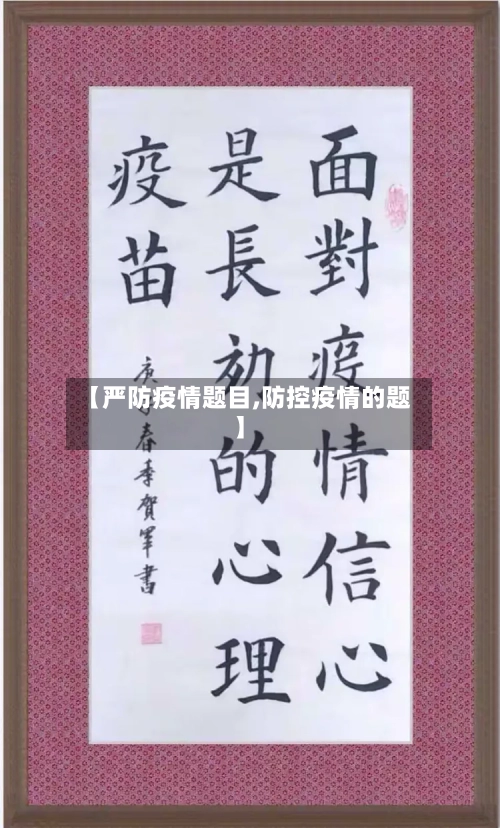 面對疫情信心
是長効的心理
疫苗
庚子春季賀軍書
【严防疫情题目,防控疫情的题
】